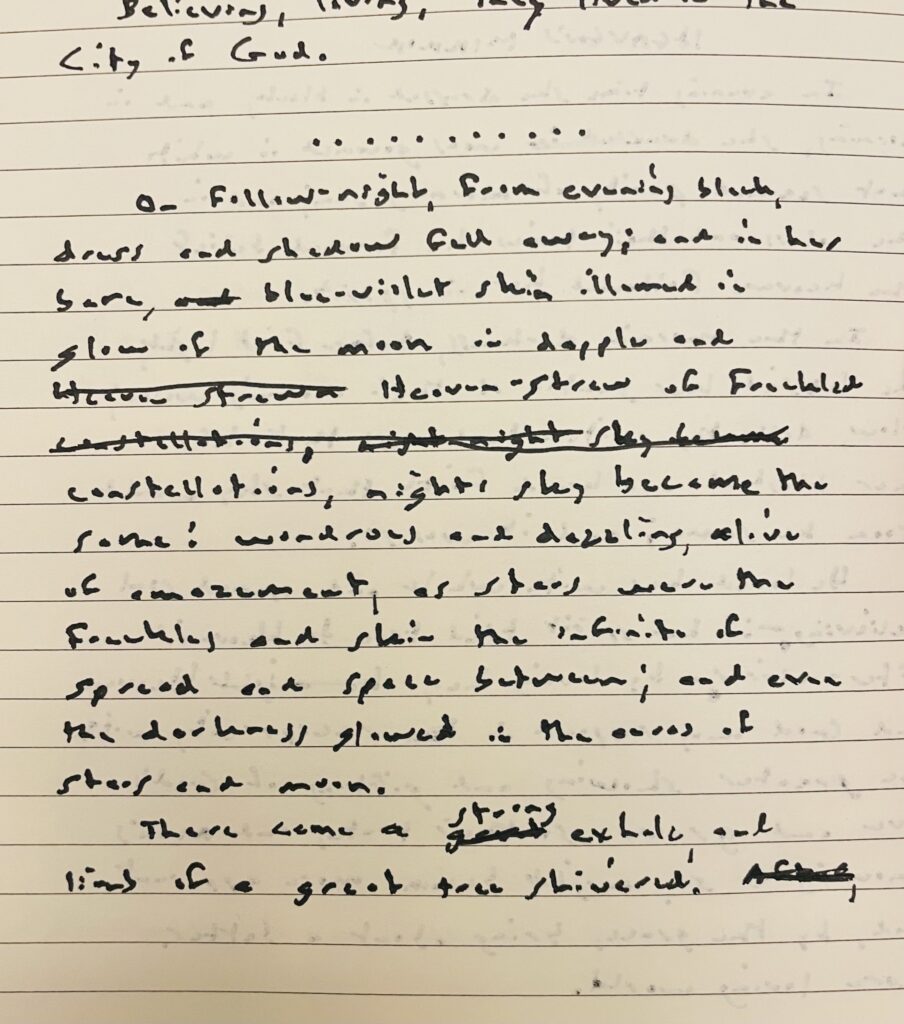 Believing, living, they lived in the
City of God.
...........
On Follow-night, from evening black,
dress and shadow fall away; and in her
bare, and blue-violet skin illumed in
glow of the moon in dapple and
Heaven strewn Heaven-strew of freckled
constellations, night night sky became
constellations, nights sky became the
same: wondrous and dazzling, alive
of amazement, as stars were the
freckles and skin the infinite of
spread and space between; and even
the darkness glowed in the auras of
stars and moon.
There came a great strong exhale, and
limbs of a great tree shivered. After,